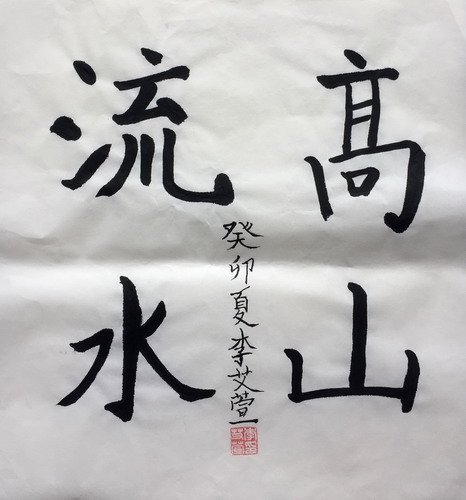 髙山
流水
癸卯夏李艾萱